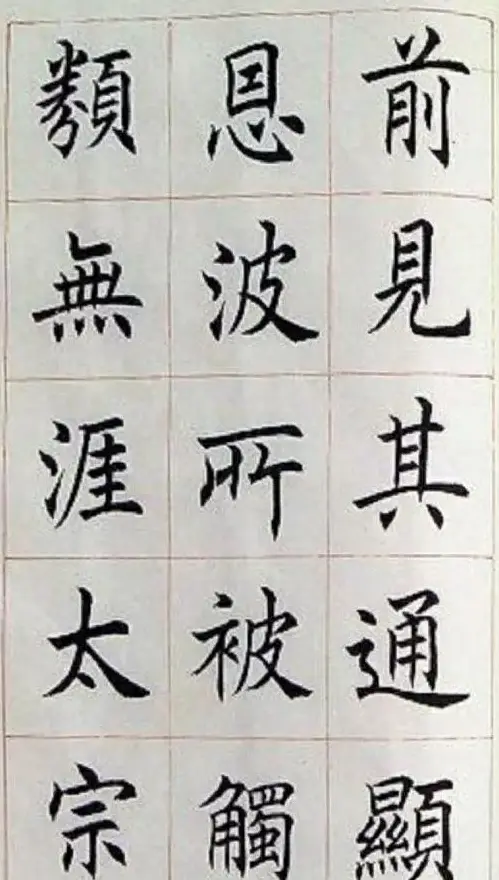 前見其通顯
恩波所被觸
類無涯太宗